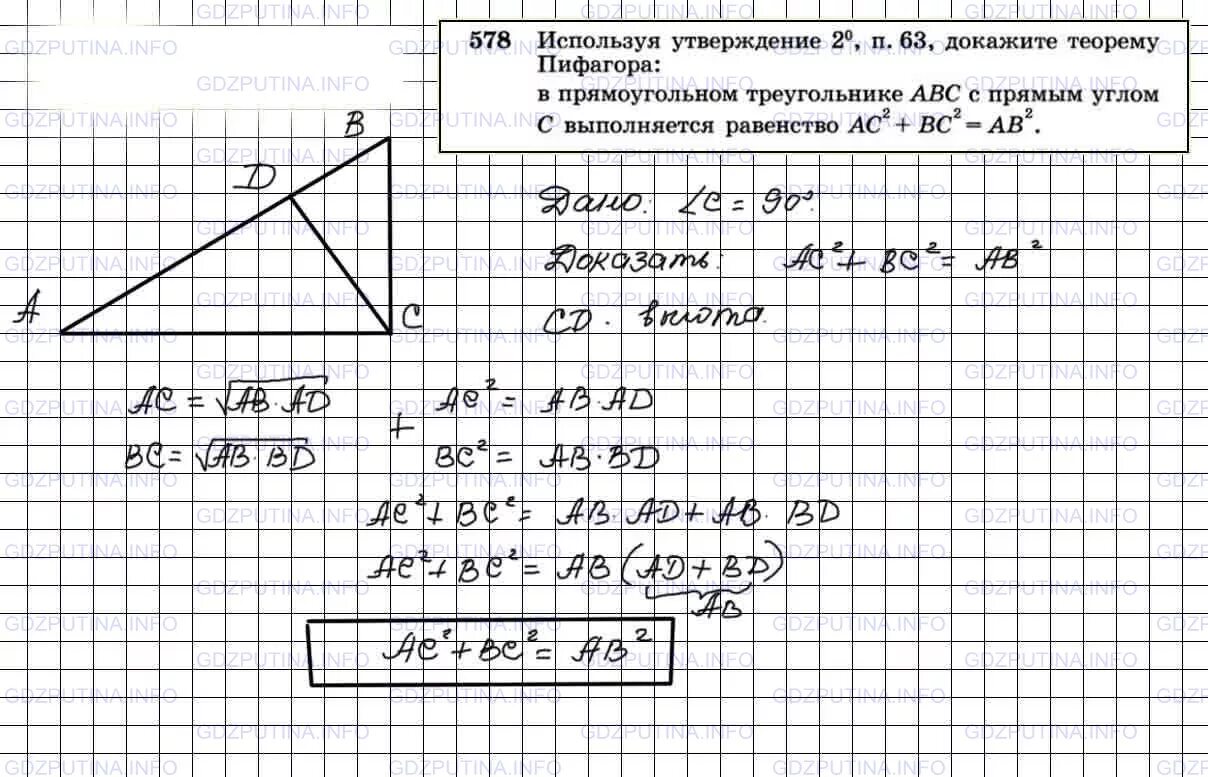 GDZPUTINA.INFO
578 Используя утверждение 2⁰, п. 63, докажите теорему
Пифагора:
в прямоугольном треугольнике ABC с прямым углом
C выполняется равенство AC² + BC² = AB².
B
D
A
C
Дано: ∠C = 90°.
Доказать: AC² + BC² = AB²
CD. высота.
AC = √AB · AD
+
AC² = AB · AD
BC = √AB · BD
BC² = AB · BD
AC² + BC² = AB · AD + AB · BD
AC² + BC² = AB (AD + BD)
AB
AC² + BC² = AB²